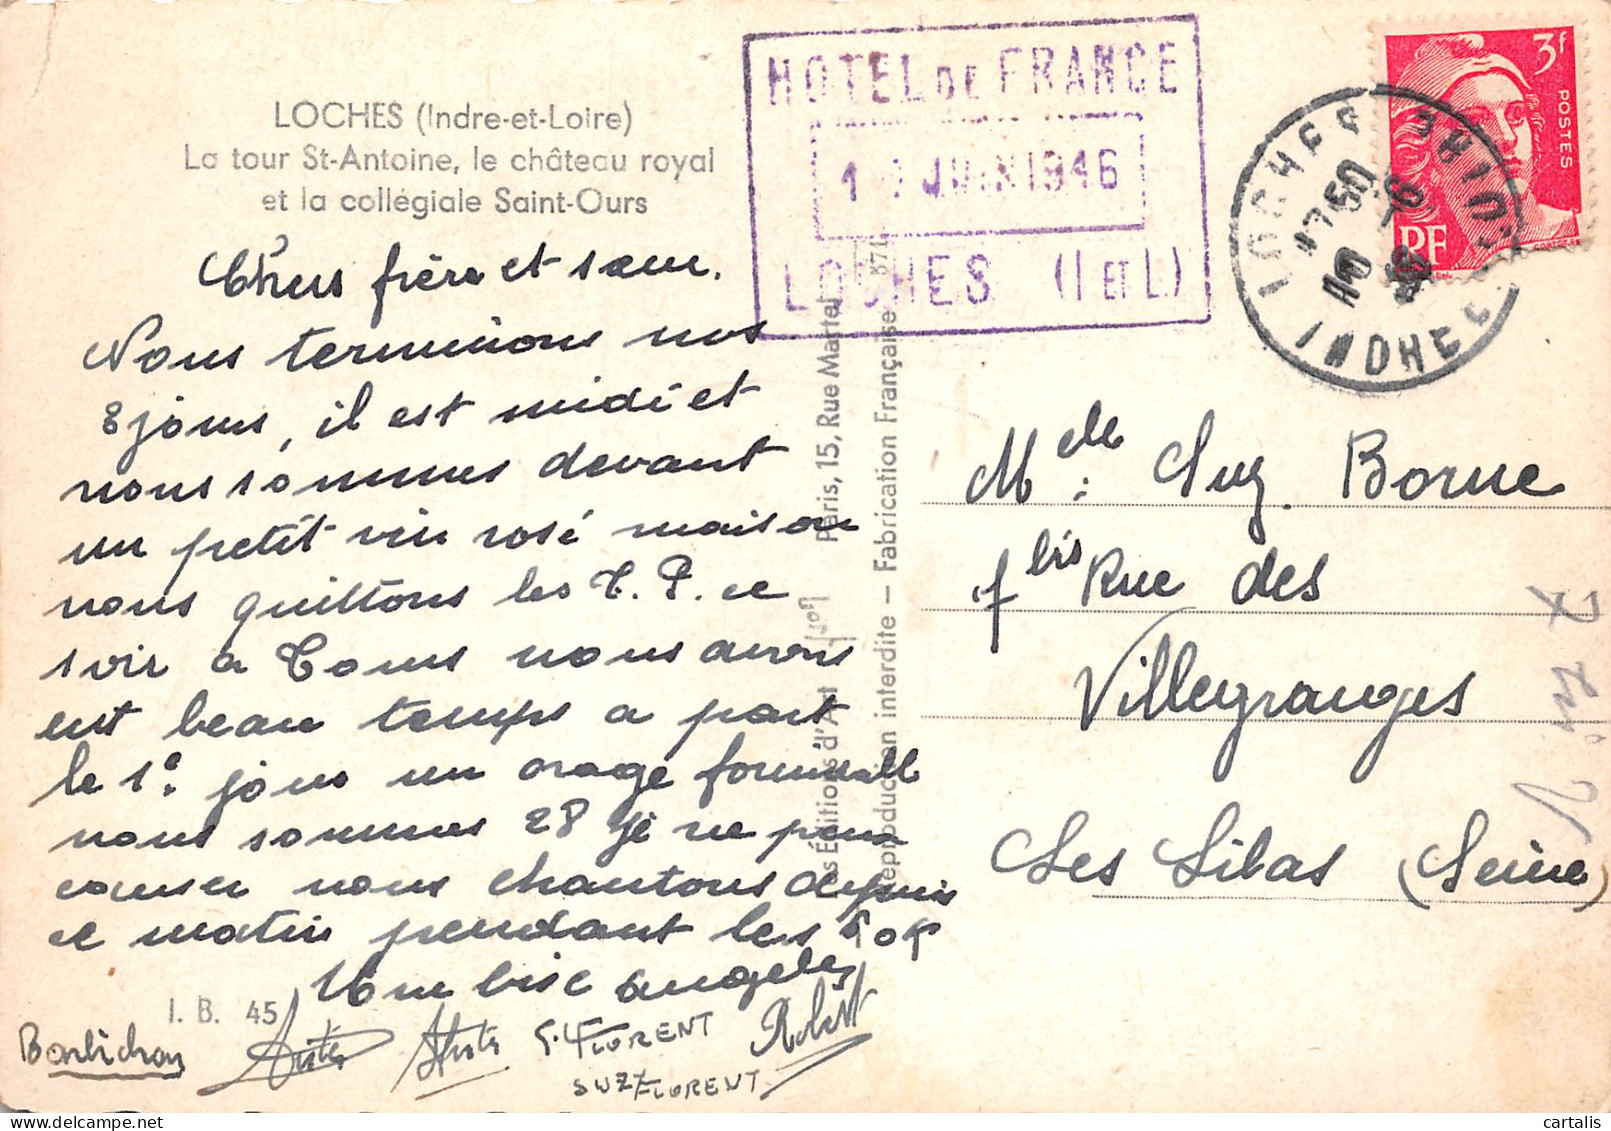 LOCHES (Indre-et-Loire)
La tour St-Antoine, le château royal
et la collégiale Saint-Ours
HOTEL DE FRANCE
JUIN 1946
LOCHES (I ET L)
3f
POSTES
RF
LOCHES
INDRE
Chers frère et sœur.
Nous terminons nos
8 jours, il est midi et
nous sommes devant
un petit vin rosé maison
nous quittons les C. P. ce
soir a Tours nous avons
eut beau temps a part
le 1e. jour un orage formidable
nous sommes 28 je ne peux
causer nous chantons depuis
ce matin pendant les
Une bise
I. B. 45
Barbichon
G. FLORENT
Robert
SUZ FLORENT
Les Éditions d'Art Yvon Paris, 15, Rue Martel
Reproduction interdite — Fabrication Française
Melle Suz. Borne
7 bis Rue des
Villegranges
Les Lilas (Seine)